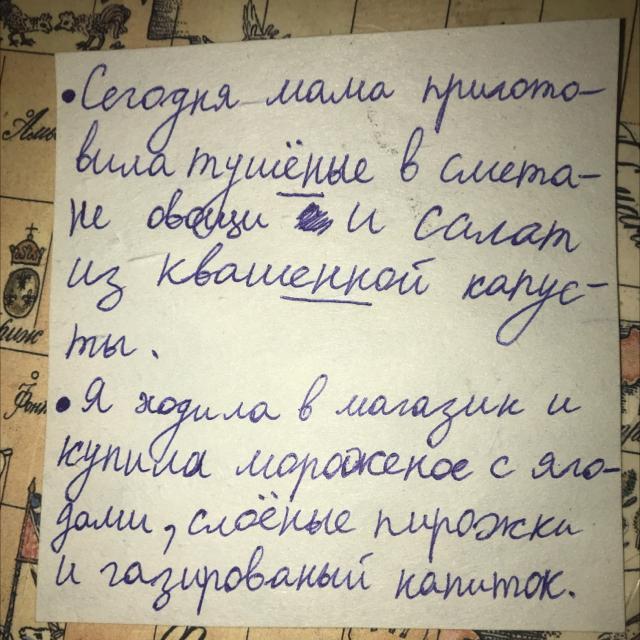 • Сегодня мама пригото-
вила тушёные в смета-
не овощи и салат
из квашенной капус-
ты.
• Я ходила в магазин и
купила мороженое с яго-
дами, слоёные пирожки
и газированый напиток.